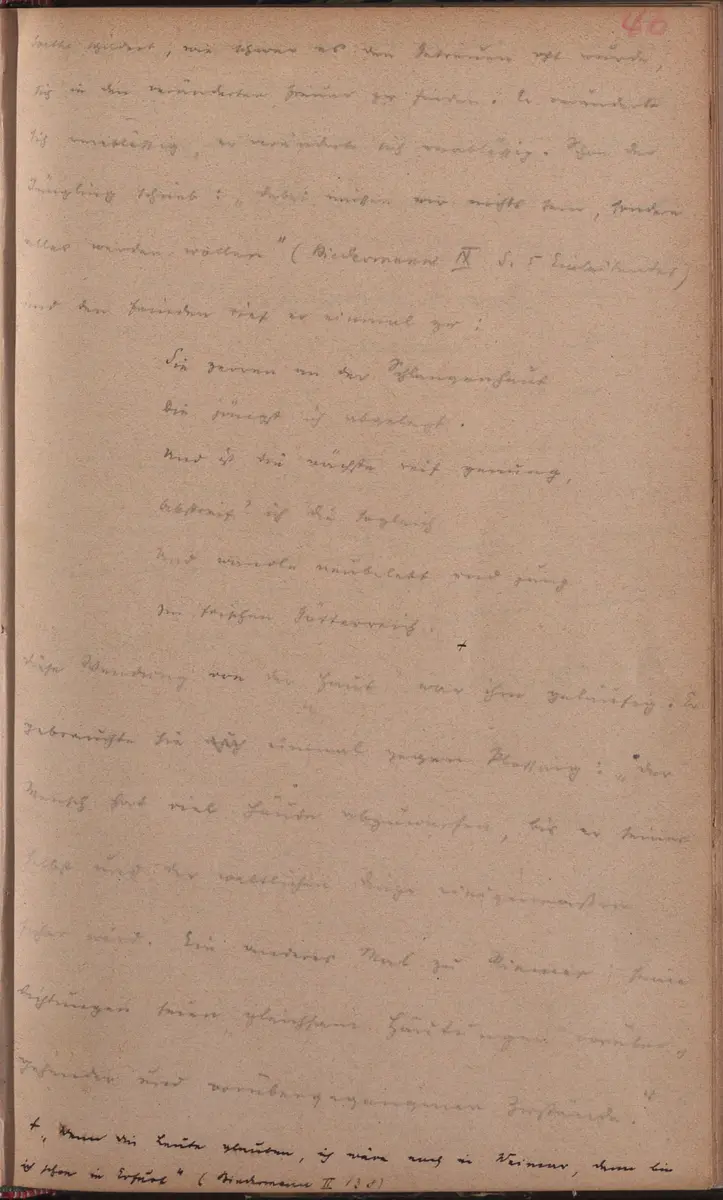 40
schildert, wie schwer es den Getreuen oft wurde,
sich in den veränderten Freund zu finden. Er veränderte
sich unablässig, er veränderte sich unablässig. Schon der
Jüngling schrieb: „dabei müssen wir nichts sein, sondern
alles werden wollen" (Biedermann IX S. 5 Einleitendes)
und den Feinden rief er einmal zu:
Sie zerren an der Schlangenhaut
Die jüngst ich abgelegt.
Und ist die nächste reif genung,
Abstreif' ich die sogleich
Und wandle neubelebt und jung
Im frischen Götterreich. +
Diese Wendung von der Haut war ihm geläufig. Er
gebrauchte sie einmal gegen Plessing: „Der
Mensch hat viel Häute abzuwerfen, bis er seiner
selbst und der weltlichen Dinge einigermassen
sicher wird. Ein anderes Mal zu Riemer: seine
Dichtungen seien gleichsam Häutungen vorüber
gehender und vorübergegangener Zustände."
+ „Denn die Leute glauben, ich wäre noch in Weimar, dann bin
ich schon in Erfurt" (Biedermann II 138)